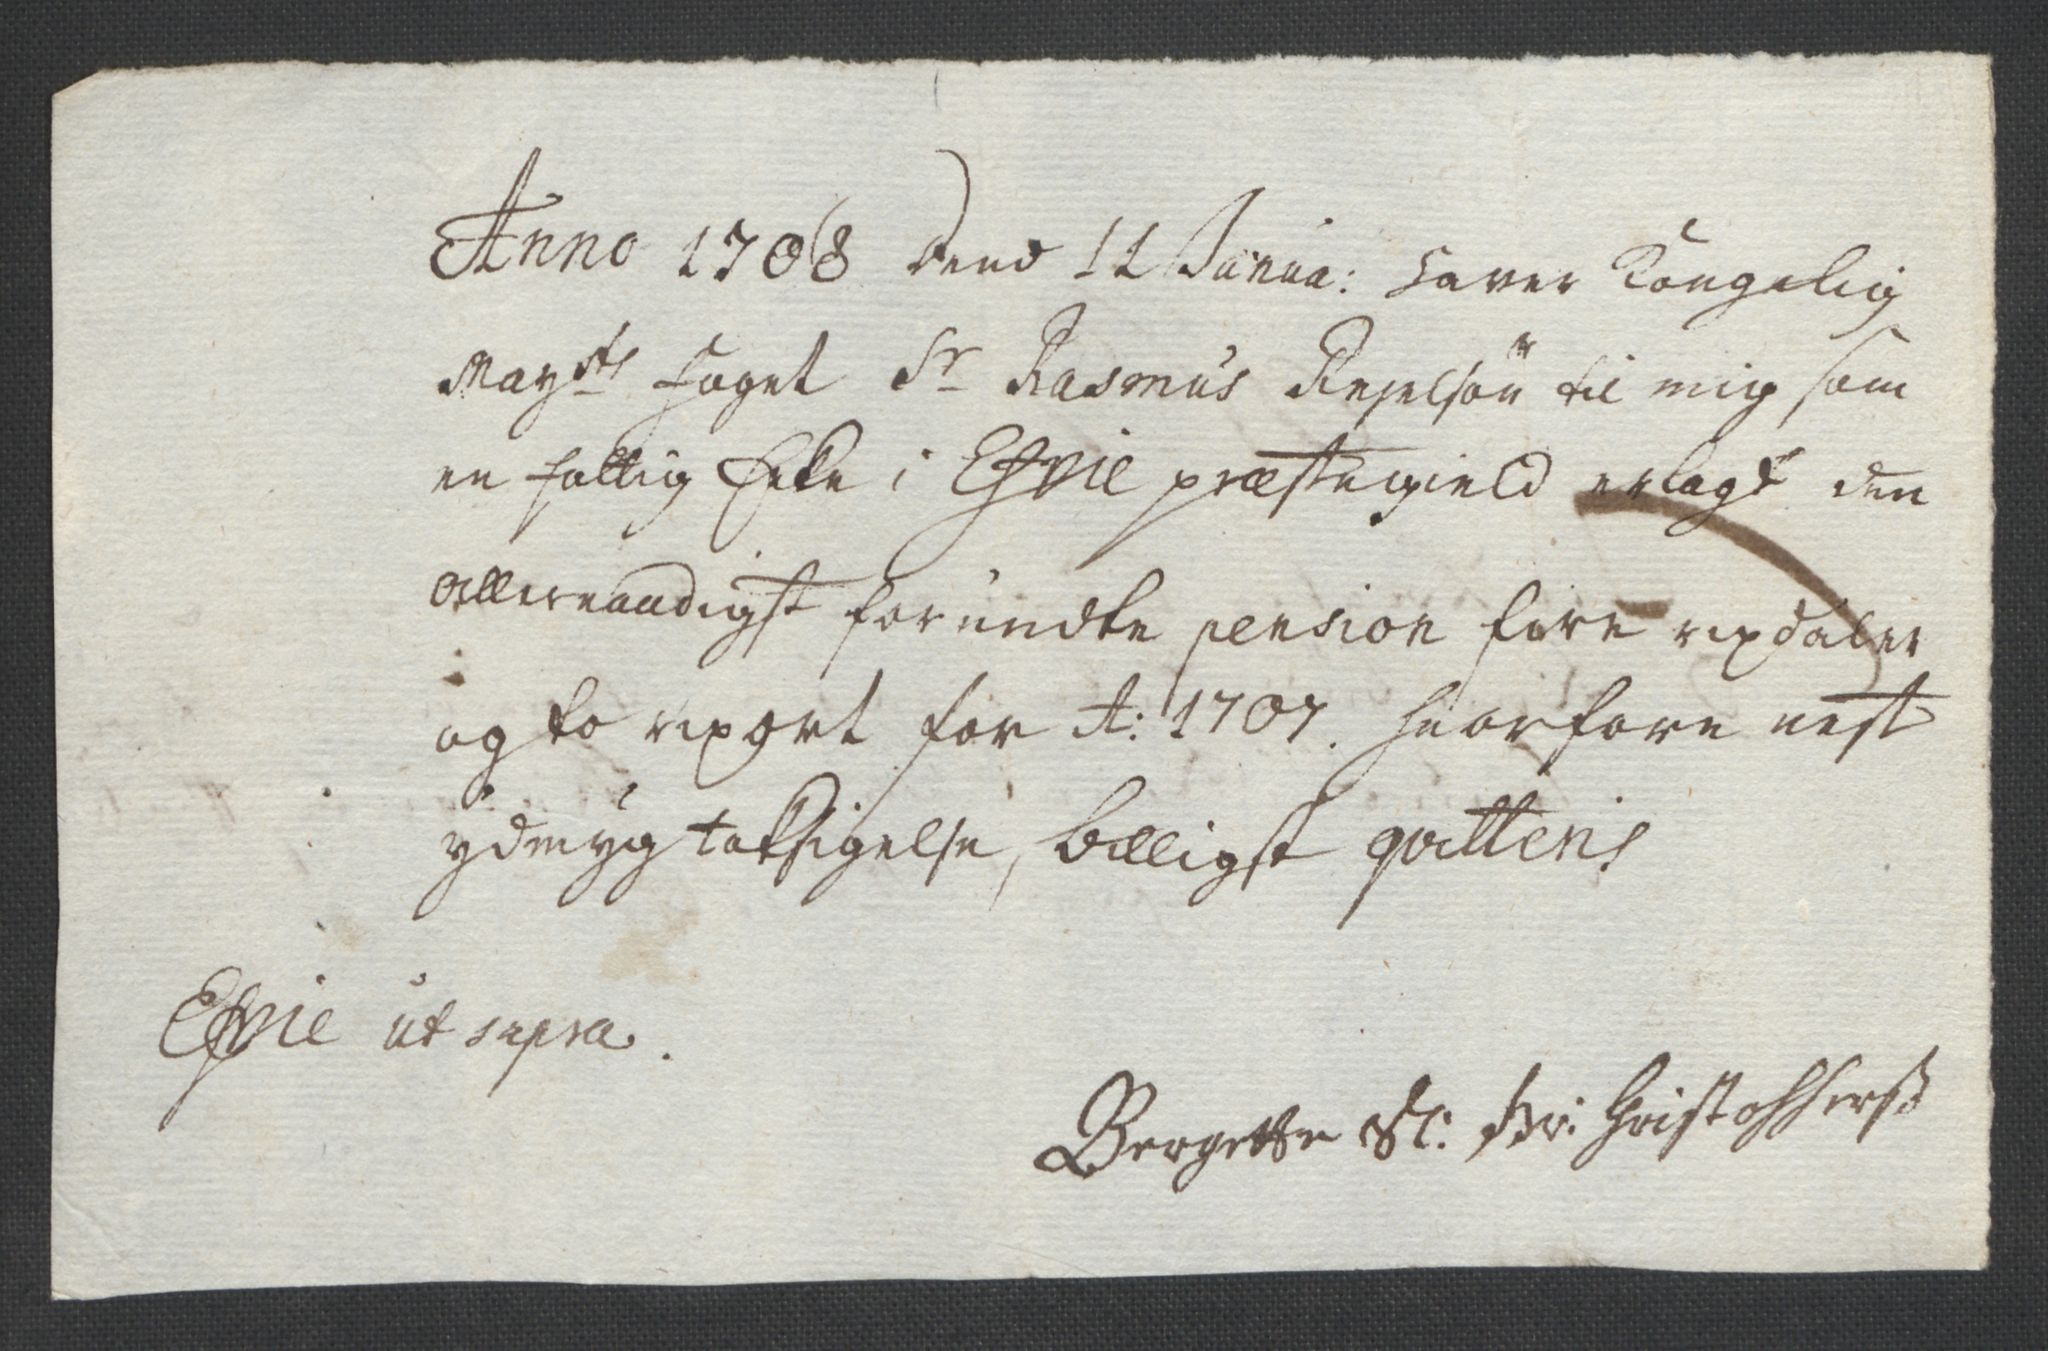 Anno 1708 dend 11 Janua: haver Kongelig
Mayts foget Sr Rasmus til mig som
en fattig Enke i Efvie præstegield erlagt den
allernaadigst forundte pension fire rixdaler
og to rixort for A: 1707. huorfore nest
ydmyg taksigelse, billigst qvitteris
Efvie ut supra.
Bergette Sl: Hr: Christophers